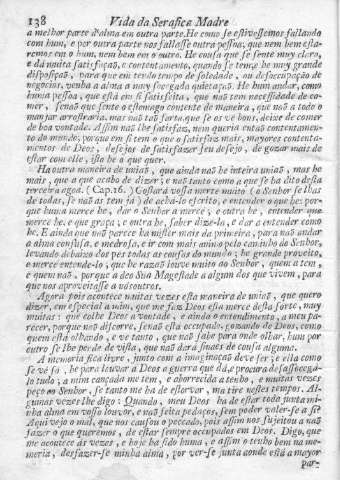 138 Vida da Serafica Madre
a melhor parte d'alma em outra parte. He como se estivessemos fallando
com hum, e por outra parte nos fallasse outra pessoa, que nem bem esta-
remos em o hum, nem bem em o outro. He cousa que se sente muy claro,
e dà muita satisfaçaõ, e contentamento, quando se tem, e he muy grande
disposiçaõ, para que em tendo tempo de soledade, ou desoccupaçaõ de
negocios, venha a alma a muy socegada quietaçaõ. He hum andar, como
huma pessoa, que està em si satisfeita, que naõ tem necessidade de co-
mer, senaõ que sente o estomago contente de maneira, que naõ a todo o
manjar arrostraria, mas naõ taõ farta, que se os vè bons, deixe de comer
de boa vontade. Assim naõ lhe satisfaz, nem queria entaõ contentamen-
to do mundo, porque em si tem o que o satisfaz mais, mayores contenta-
mentos de Deos, desejos de satisfazer seu desejo, de gozar mais de
estar com elle, isto he o que quer.
Ha outra maneira de uniaõ, que ainda naõ he inteira uniaõ, mas he
mais, que a que acabo de dizer; e naõ tanto como a que se ha dito desta
terceira agoa. (Cap. 16.) Gostarà vossa merce muito (o Senhor se lhas
de todas, se naõ as tem jà) de achalo escrito, e entender o que he: por-
que huma merce he, dar o Senhor a merce, e outra he, entender que
merce he, e que graça; e outra he, saber dizela, e dar a entender como
he. E ainda que naõ parece ha mister mais da primeira, para naõ andar
a alma confusa, e medrosa, e ir com mais animo pelo caminho do Senhor,
levando debaixo dos pès todas as cousas do mundo; he grande proveito,
e merce entendelo, que he razaõ louve muito ao Senhor, quem a tem,
e quem naõ, porque a deo Sua Magestade a algum dos que vivem, para
que nos aproveitasse a nòsoutros.
Agora pois acontece muitas vezes esta maneira de uniaõ, que quero
dizer, em especial a mim, que me faz Deos esta merce desta sorte, muy
muitas: que colhe Deos a vontade, e ainda o entendimento, a meu pa-
recer, porque naõ discorre, senaõ està occupado, gozando de Deos, como
quem està olhando, e ve tanto, que naõ sabe para onde olhar, hum por
outro se lhe perde de vista, que naõ darà sinaes de cousa alguma.
A memoria fica livre, junto com a imaginaçaõ deve ser; e ella como
se vè só, he para louvar a Deos a guerra que dà, e procura desassocega-
lo tudo; a mim cançada me tem, e aborrecida a tenho, e muitas vezes
peço ao Senhor, se tanto me ha de estorvar, ma tire nestes tempos. Al-
gumas vezes lhe digo: Quando, meu Deos ha de estar toda junta mi-
nha alma em vosso louvor, e naõ feita pedaços, sem poder valer-se a si?
Aqui vejo o mal, que nos causou o peccado, pois assim nos sujeitou a naõ
fazer o que queremos, de estar sempre occupados em Deos. Digo, que
me acontece às vezes, e hoje ha sido huma, e assim o tenho bem na me-
moria, desfazer-se minha alma, por ver-se junta aonde està a mayor
par-